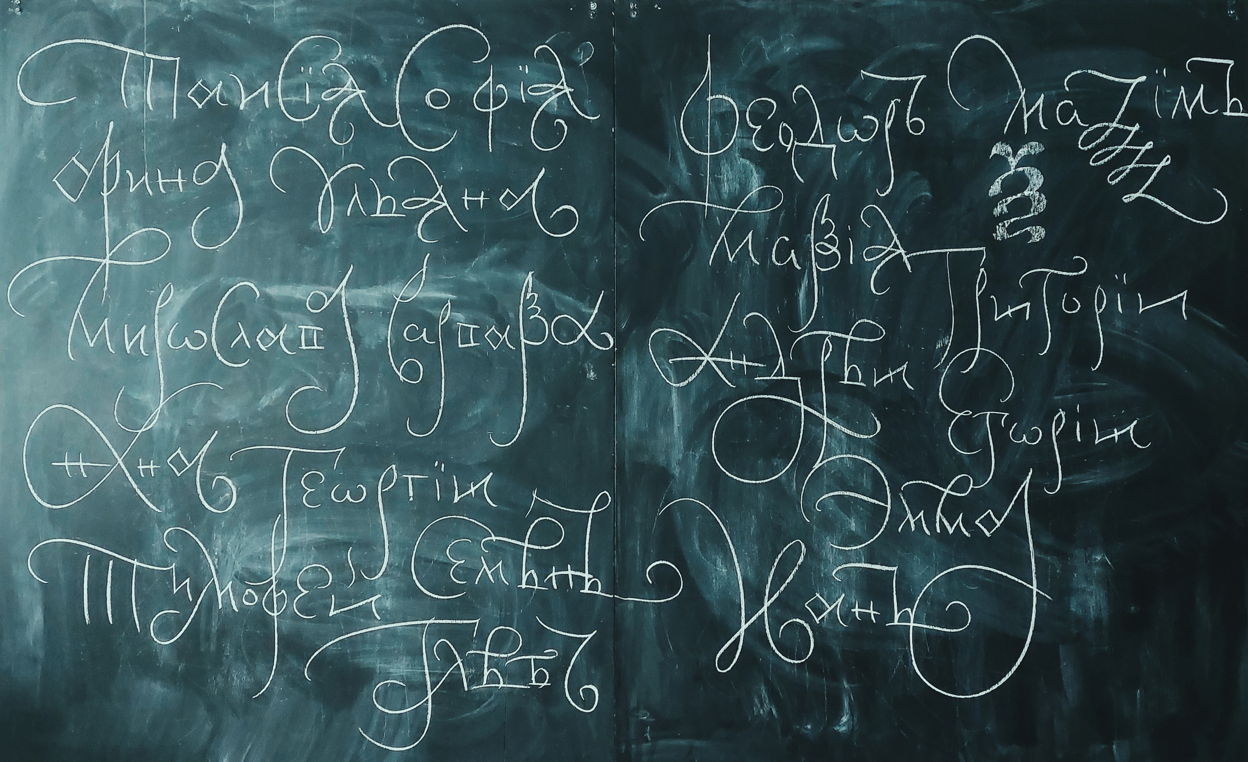 Таисїя Софїя
Арина Ульяна
Мирѡслава Варвара
Анна Геѡргїй
Тимофей Семѣнъ
Глѣбъ
Феодѡръ Маѯїмъ
Ѯ
Марія Григорїй
Андрѣй Егѡрій
Эмма